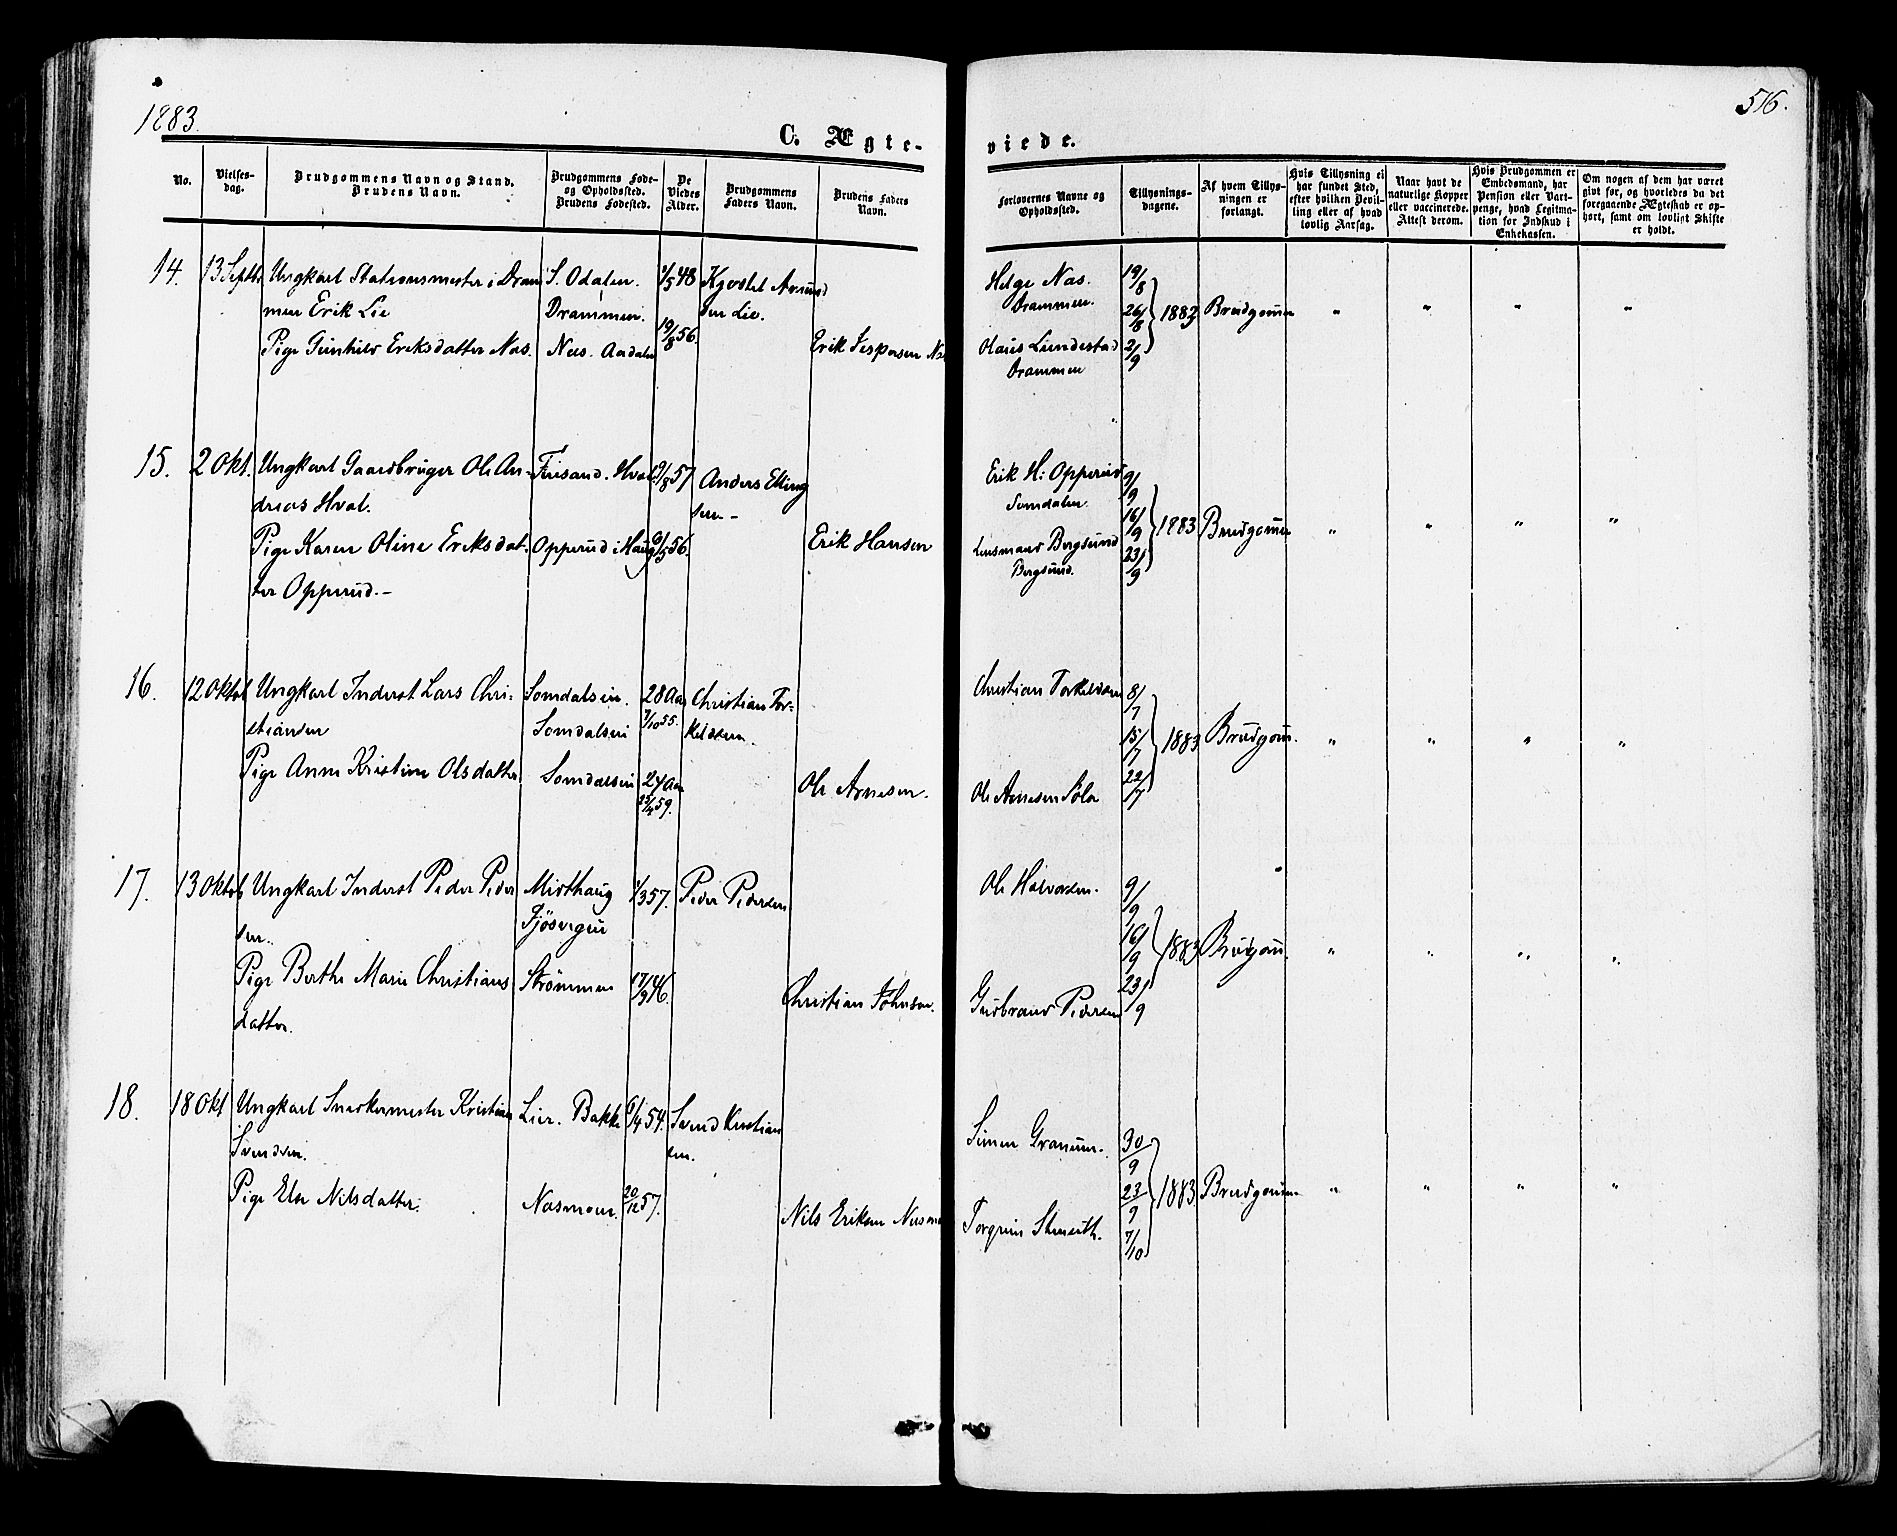 1883.
516.
C. Ægte-
viede.
No.
Vielses-
dag.
Brudgommens Navn og Stand.
Brudens Navn.
Brudgommens Føde-
og Opholdssted.
Brudens Fødested.
De
Viedes
Alder.
Brudgommens
Faders Navn.
Brudens Faders
Navn.
Forlovernes Navne og
Opholdssted.
Tillysnings-
dagene.
Af hvem Tillys-
ningen er
forlangt.
Hvis Tillysning ei
har fundet Sted,
efter hvilken Bevil-
ling eller af hvad
lovlig Aarsag.
Naar havt de
naturlige Kopper
eller vaccinerede.
Attest derom.
Hvis Brudgommen er
Embedsmand, har
Pension eller Vart-
penge, hvad Legitima-
tion for Indskud i
Enkekassen.
Om nogen af dem har været
givt før, og hvorledes da det
foregaaende Ægteskab er op-
hørt, samt om lovligt Skifte
er holdt.
14. 13 Septbr Ungkarl Stationsmester i Dram S. Odalen. 1/5 48 Kjostel Amund
men Erik Lie Drammen. sen Lie.
Pige Gunhild Eriksdatter Næs. Næs. Aadalen 19/8 56. Erik Jespersen Næs
Helge Næs. 19/8
Drammen. 26/8 1883 Brudgommen " " " "
Olaus Lundestad 2/9
Drammen
15. 2 Okt. Ungkarl Gaardbruger Ole An- Finsand. Hval 19/8 57 Anders Elling
dreas Hval. sen -
Pige Karen Oline Eriksdat- Opperud i Haug 9/5 56. Erik Hansen
ter Opperud. -
Erik H. Opperud 9/9
Somdalen 16/9 1883 Brudgommen " " " "
Lensmand Bergsund 23/9
Bergsund.
16. 12 Oktob Ungkarl Inderst Lars Chri- Somdalseien. 28 Aar Christian Tor-
stiansen Somdalseien 7/10 55. kildsen.
Pige Anne Kristine Olsdatter Somdalseien 24 Aar Ole Arnesen.
59.
Christian Torkildsen 8/7
15/7 1883 Brudgom. " " " "
Ole Arnesen Sole 22/7
17. 13 Oktob Ungkarl Inderst Peder Peder Misthaug 1/3 57. Peder Pedersen
sen.
Pige Berthe Marie Christians Strømmen 17/9 46. Christian Johnsen.
datter.
Ole Halvorsen. 9/9
16/9 1883 Brudgom. " " " "
Gudbrand Pedersen 23/9
18. 18 Okt Ungkarl Snedkermester Kristian Lier. Bakke 6/4 54. Svend Kristian
Svendsen. sen.
Pige Else Nilsdatter. Næsmoen. 20/12 57. Nils Eriksen Næsmo
Simen Granum. 30/9
23/9 1883 Brudgommen " " " "
Torgrim 7/10